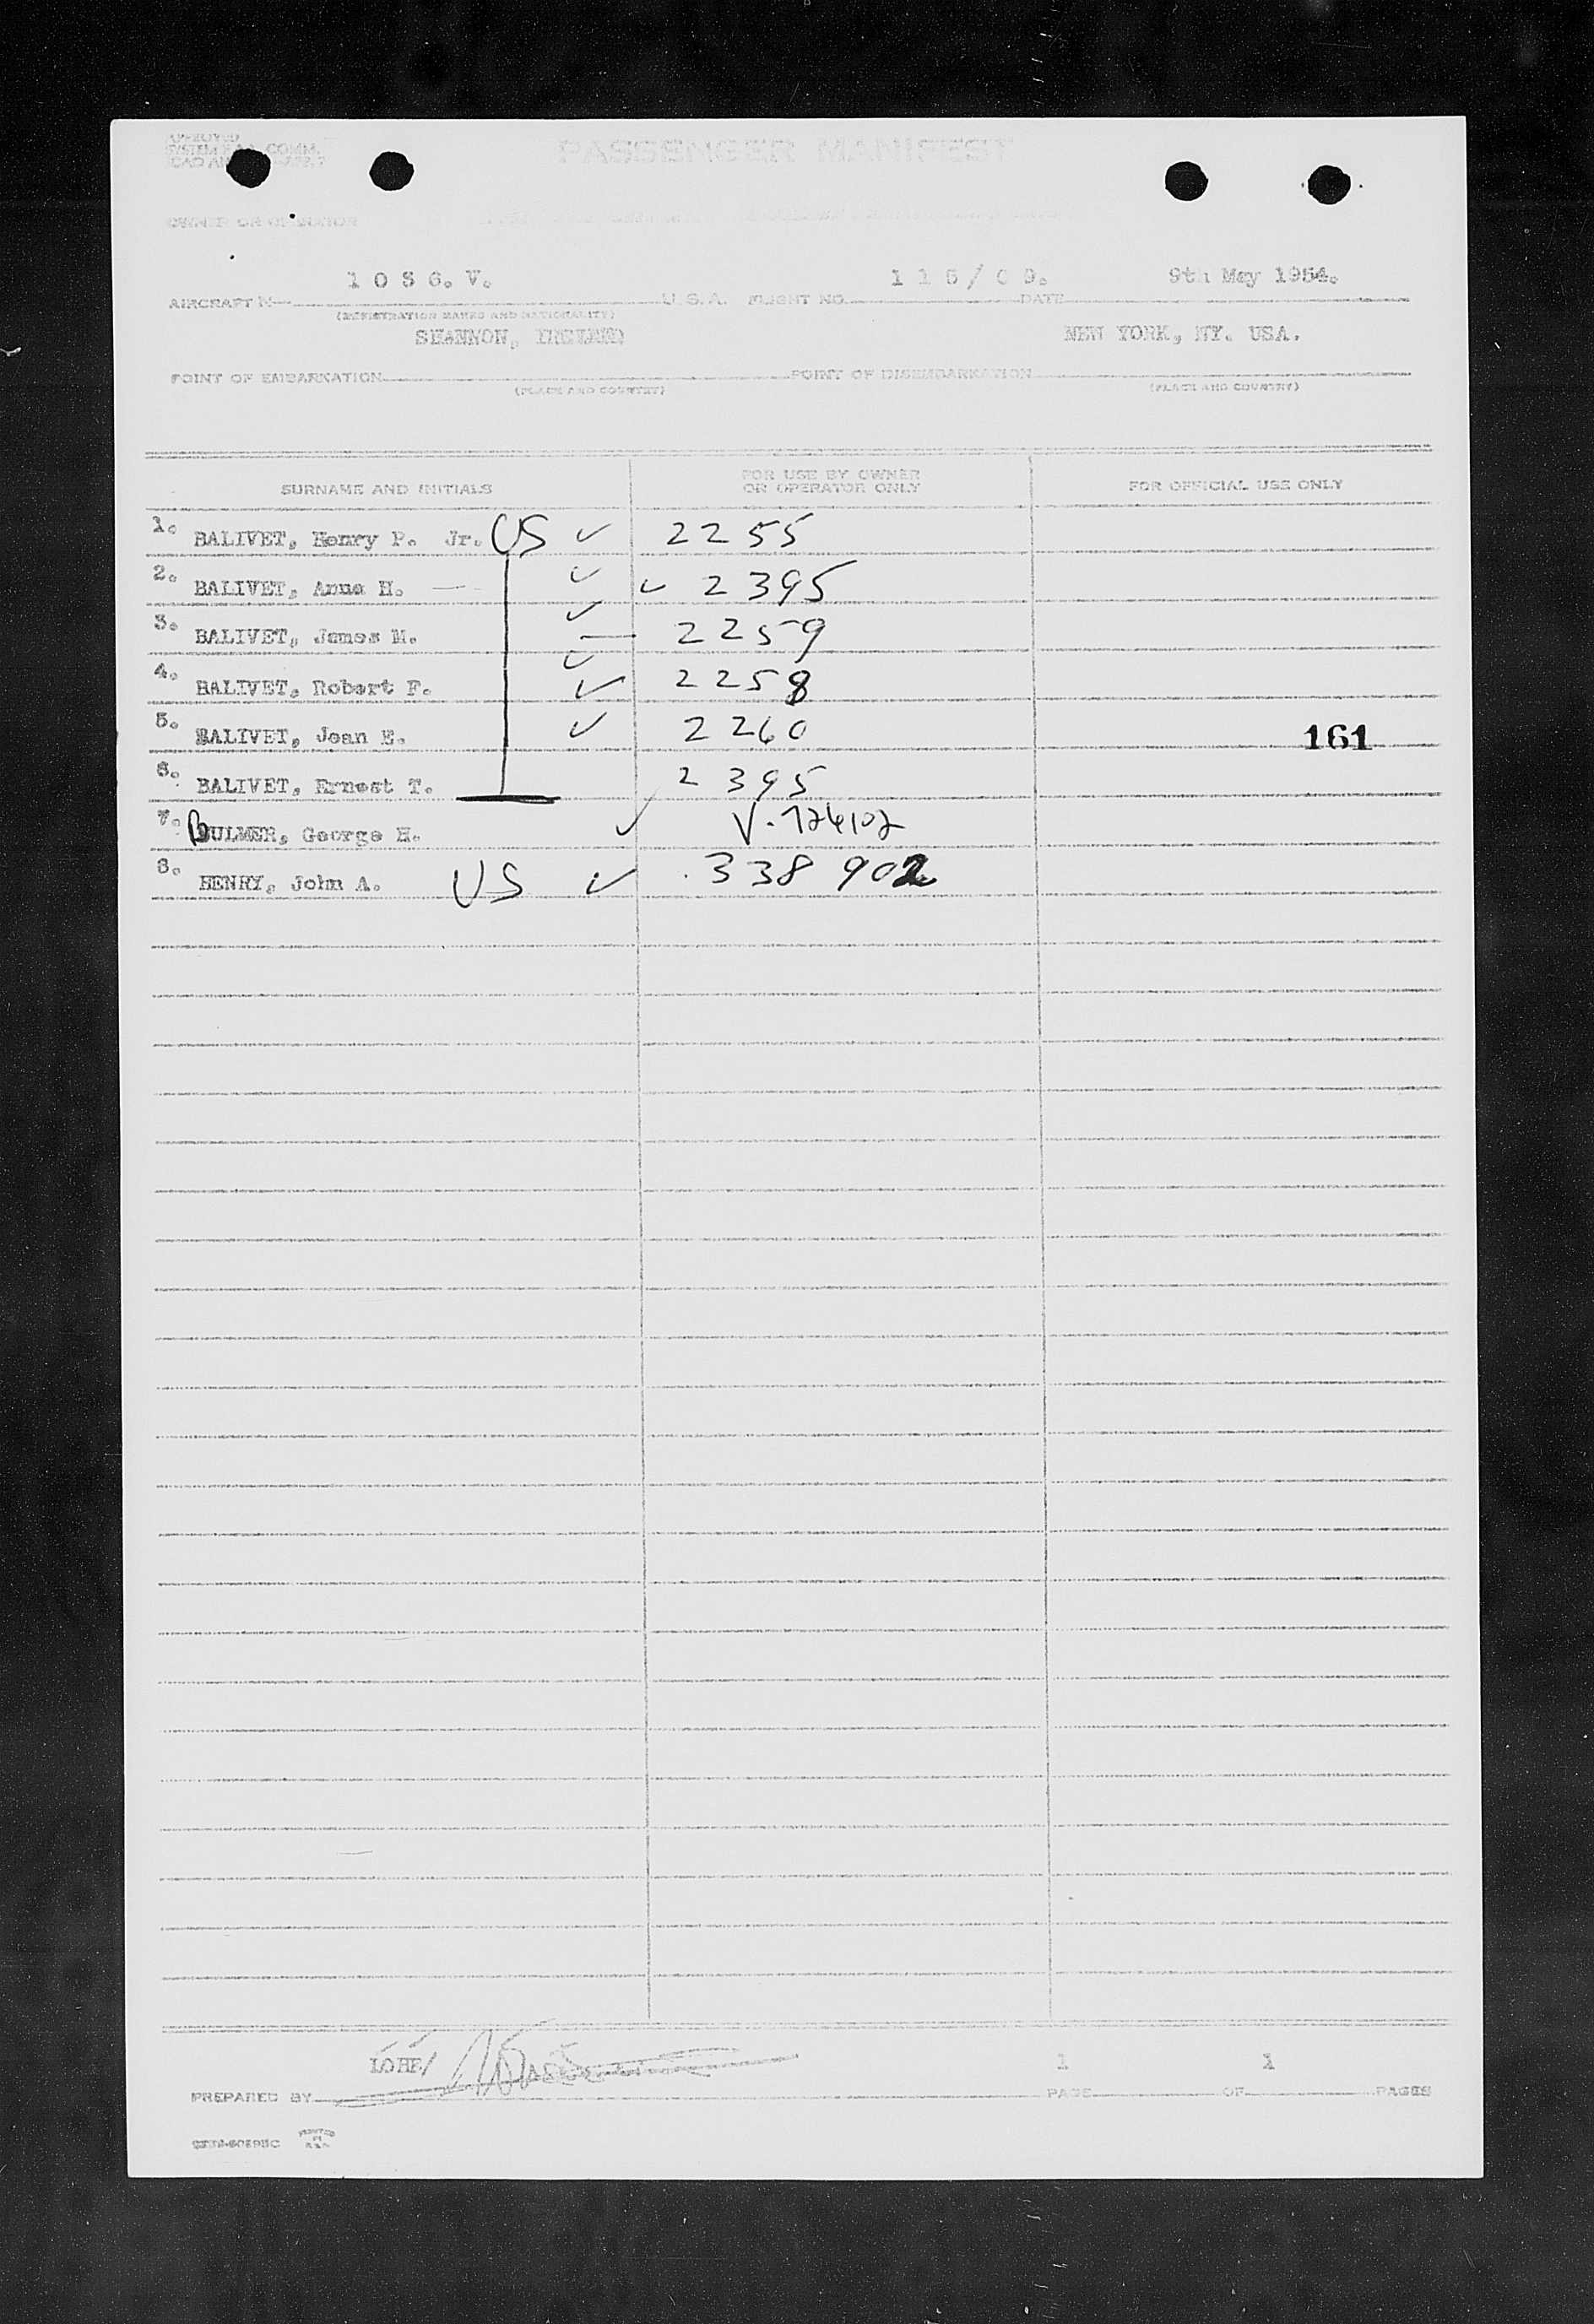 APPROVED
SYSTEM COMM.
PASSENGER MANIFEST
OWNER OR OPERATOR
1 0 3 6. V. 1 1 5 / 0 9. 9th May 1954.
AIRCRAFT N U.S.A. FLIGHT NO. DATE
(REGISTRATION MARKS AND NATIONALITY)
SHANNON, IRELAND NEW YORK, NY. USA.
POINT OF EMBARKATION POINT OF DISEMBARKATION
(PLACE AND COUNTRY) (PLACE AND COUNTRY)
SURNAME AND INITIALS FOR USE BY OWNER OR OPERATOR ONLY FOR OFFICIAL USE ONLY
1. BALIVET, Henry P. Jr. US ✓ 2255
2. BALIVET, Anna H. — ✓ ✓ 2395
3. BALIVET, James M. ✓ — 2259
4. BALIVET, Robert F. ✓ ✓ 2258
5. BALIVET, Jean E. ✓ 2260 161
6. BALIVET, Ernest T. 2395
7. BULMER, George H. ✓ V. 124102
8. HENRY, John A. US ✓ 338 902
LOHE/ 1 1
PREPARED BY PAGE OF PAGES
PRINTED